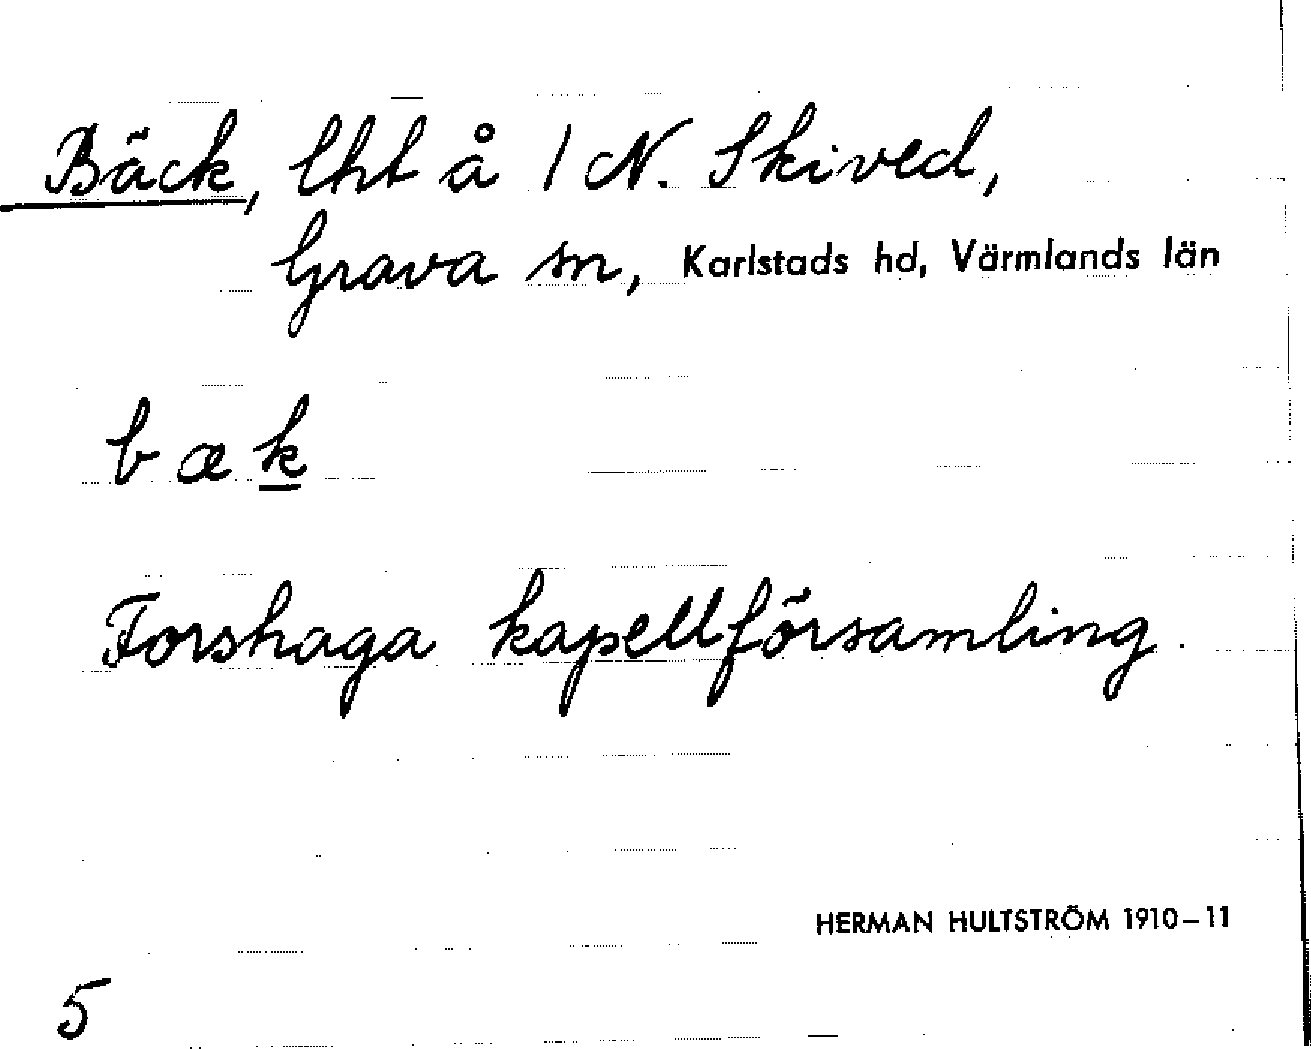 Bäck, lht å 1 N. Skived,
Grava sn, Karlstads hd, Värmlands län
bæk
Forshaga kapellförsamling.
HERMAN HULTSTRÖM 1910–11
5